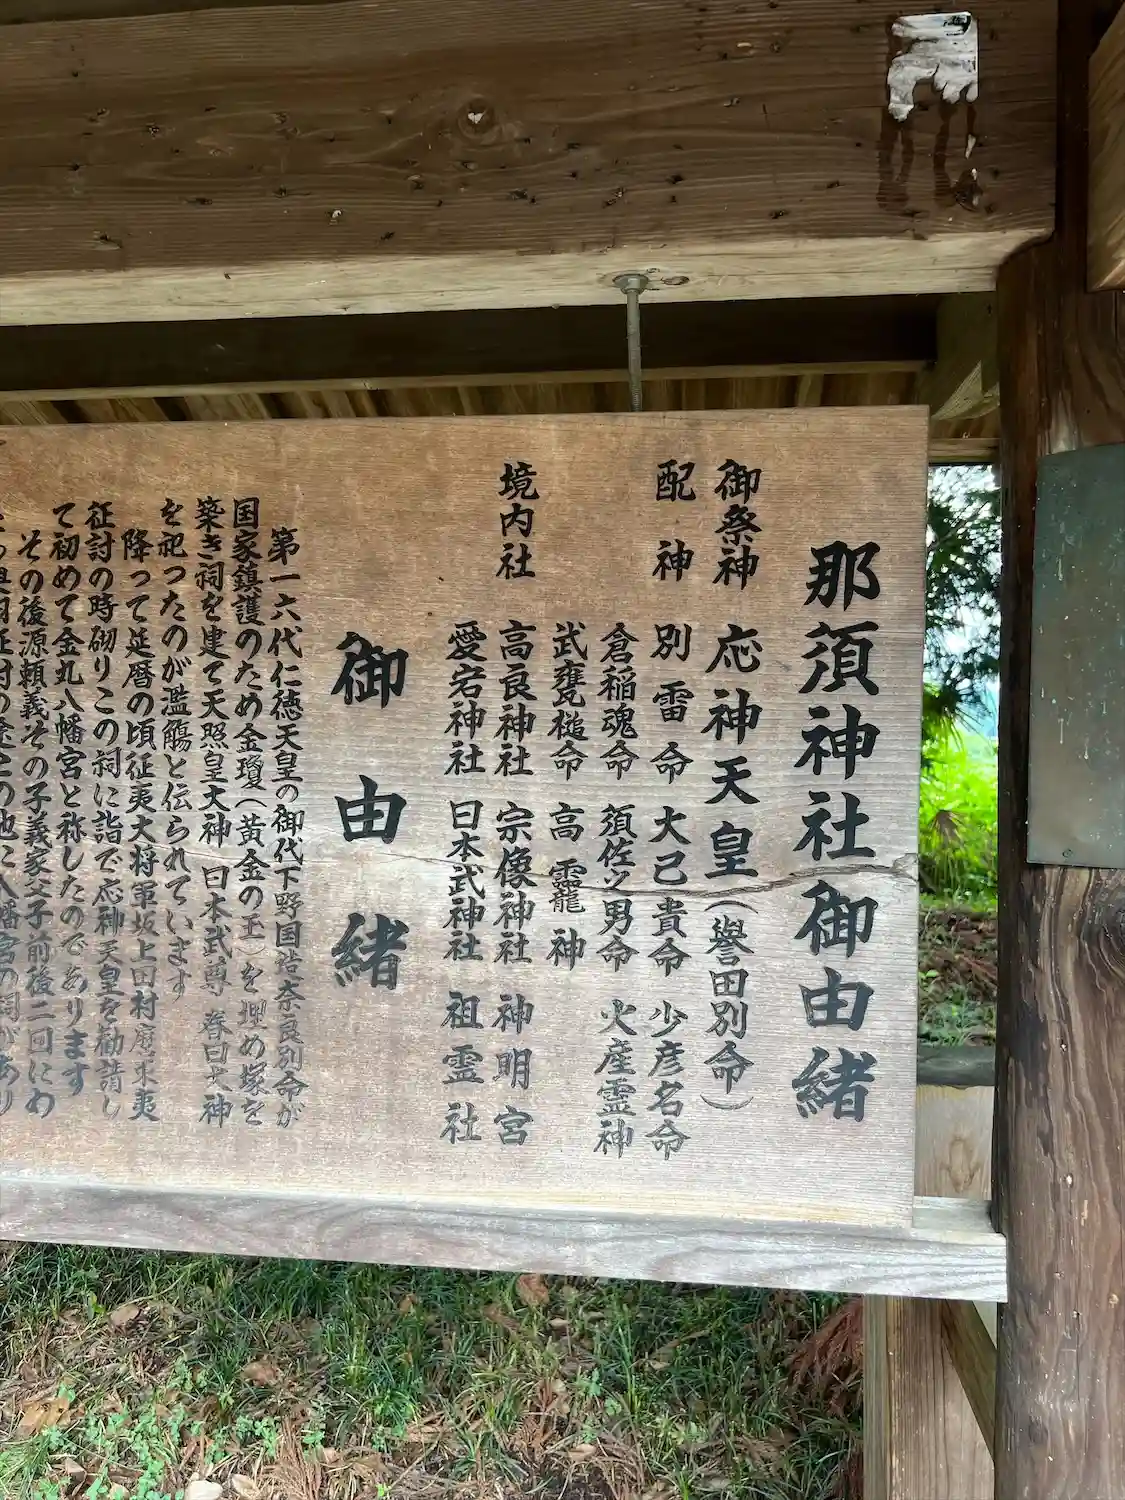 那須神社御由緒
御祭神 応神天皇(譽田別命)
配神 別雷命 大己貴命 少彦名命
倉稲魂命 須佐ツ男命 火産霊神
武甕槌命 高靇神
境内社 高良神社 宗像神社 神明宮
愛宕神社 日本武神社 祖霊社
御由緒
第一六代仁徳天皇の御代下野国造奈良別命が
国家鎮護のため金瓊(黄金の玉)を埋め塚を
築き祠を建て天照皇大神 日本武尊 春日大神
を祀ったのが濫觴と伝られています
降って延暦の頃征夷大将軍坂上田村麿東夷
征討の時砌りこの祠に詣で応神天皇を勧請し
て初めて金丸八幡宮と祢したのであります
その後源頼義その子義家父子前後二回にわ